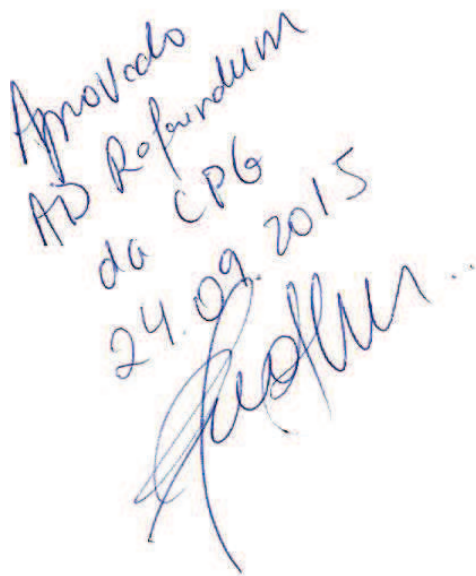 Aprovado
AD Referendum
da CPG
24.09.2015